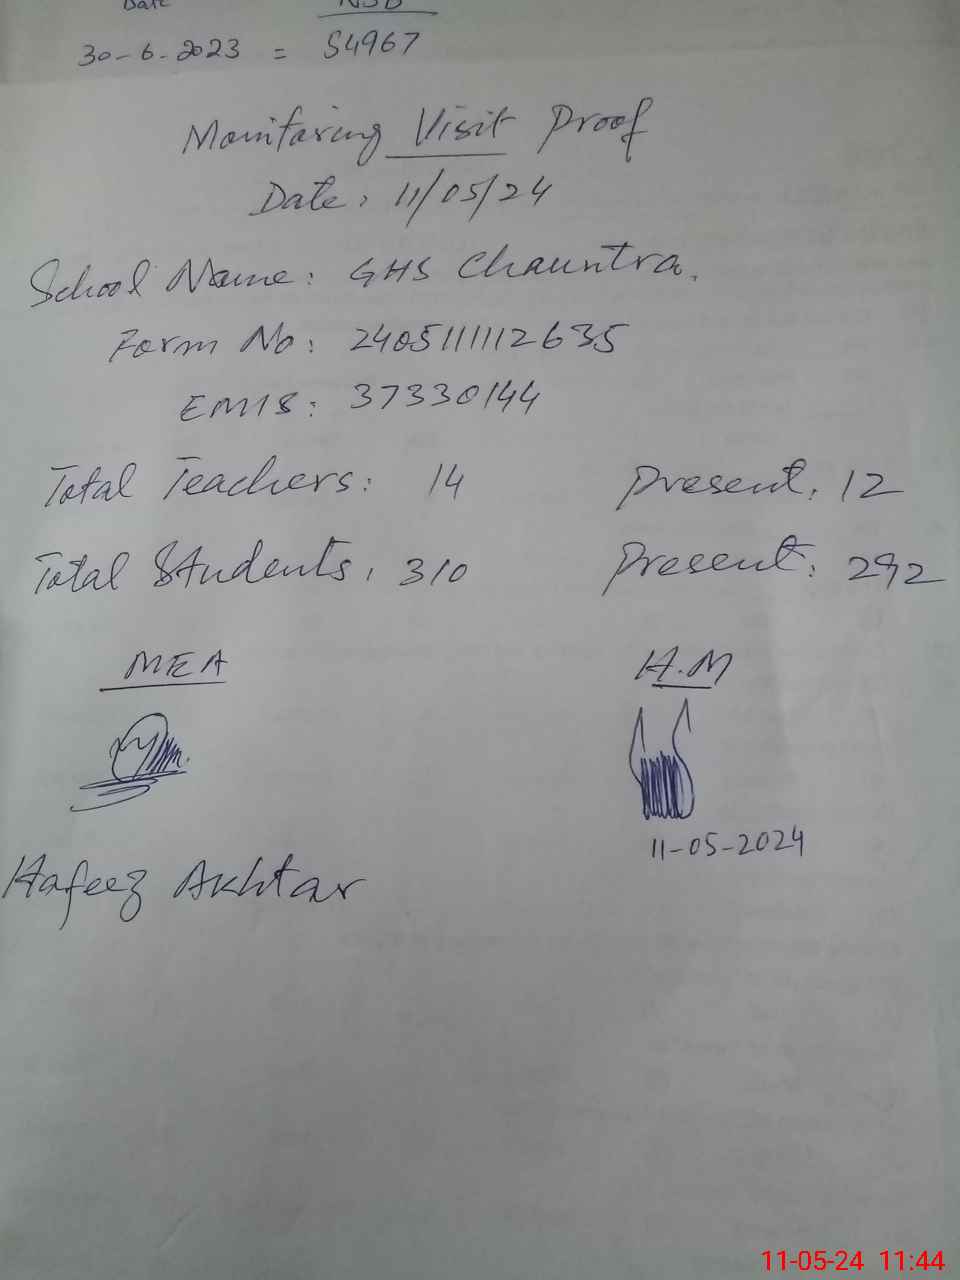 Date NSB
30-6-2023 = 54967
Monitoring Visit Proof
Date: 11/05/24
School Name: GHS Chauntra.
Form No: 2405111112635
EMIS: 37330144
Total Teachers: 14 Present: 12
Total Students: 310 Present: 292
MEA H.M
11-05-2024
Hafeez Akhtar
11-05-24 11:44